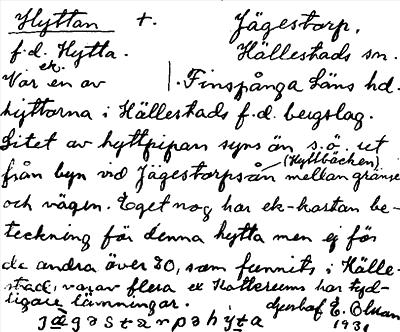 Hyttan + Jägestorp,
f.d. Hytta. Hällestads sn.
Var en av Finspånga läns hd.
hyttorna i Hällestads f.d. bergslag.
Litet av hyttpipan syns än s.ö. ut
(Hyttbäcken)
från byn vid Jägestorpsån mellan gränsen
och vägen. Eget nog har ek-kartan be-
teckning för denna hytta men ej för
de andra över 30, som funnits i Hälle-
stad, varav flera ex Kattereums har tyd-
ligare lämningar. E. Olsson
1931